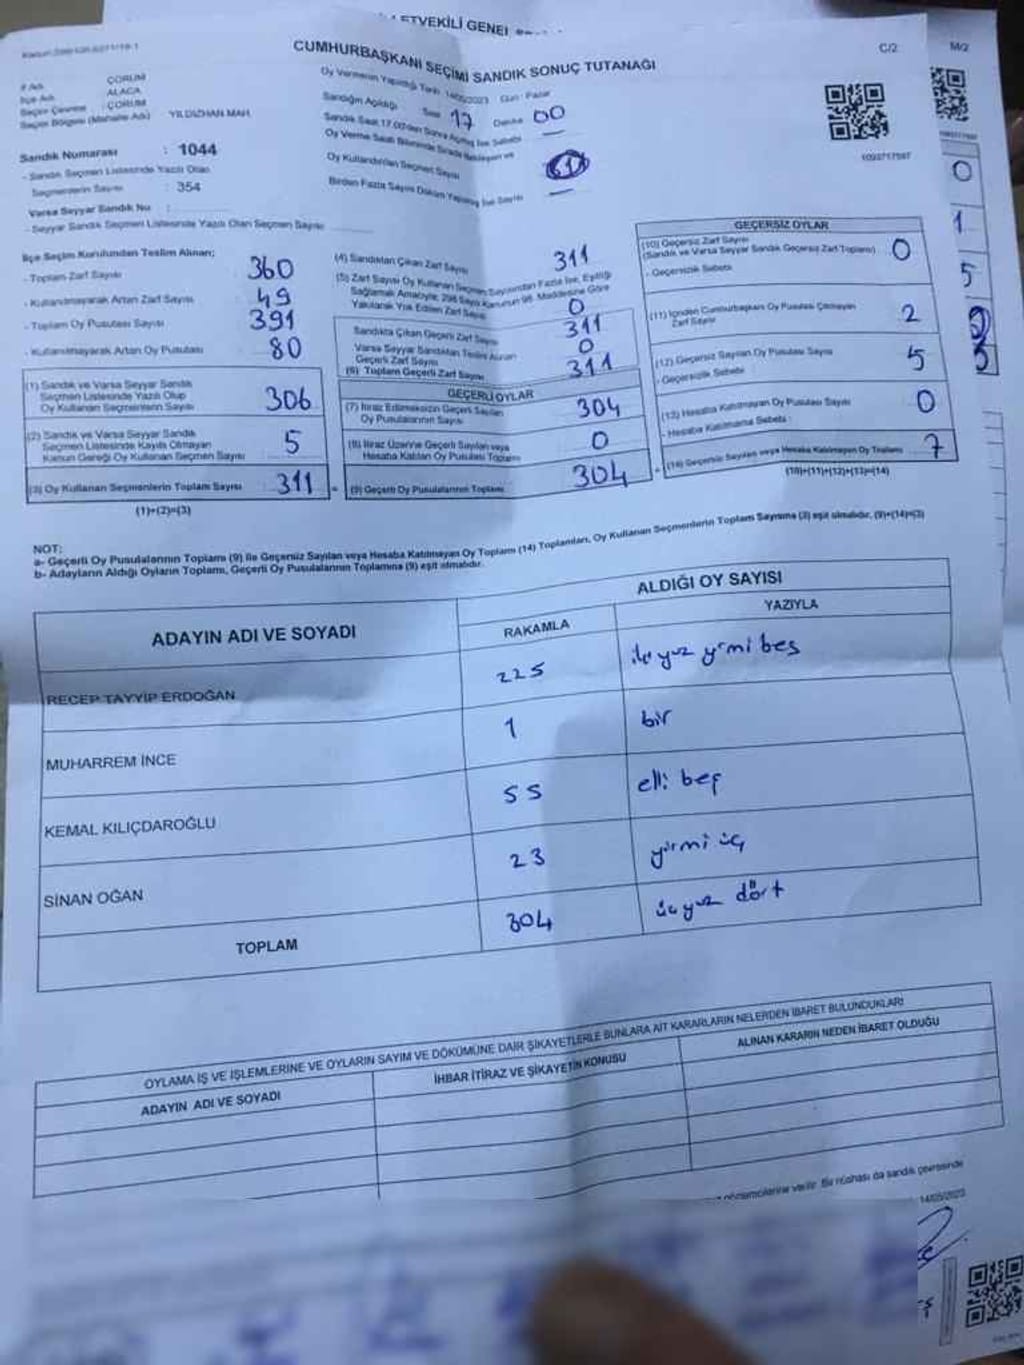 ETVEKİLİ GENEL
CUMHURBAŞKANI SEÇİMİ SANDIK SONUÇ TUTANAĞI
C/2
M/2
İl Adı : ÇORUM
İlçe Adı : ALACA
Seçim Çevresi : ÇORUM
Seçim Bölgesi (Mahalle Adı) YILDIZHAN MAH.
Sandık Numarası : 1044
- Sandık Seçmen Listesinde Yazılı Olan
Seçmenlerin Sayısı : 354
Varsa Seyyar Sandık No :
- Seyyar Sandık Seçmen Listesinde Yazılı Olan Seçmen Sayısı
Oy Vermenin Yapıldığı Tarih : 14/05/2023 Gün : Pazar
Sandığın Açıldığı Saat 17 Dakika 00
Sandık Saat 17.00'den Sonra Açılmış İse Sebebi —
Oy Verme Saati Bitiminde Sırada Bekleyen ve
Oy Kullandırılan Seçmen Sayısı
Birden Fazla Sayım Döküm Yapılmış İse Sayısı —
1093717597
İlçe Seçim Kurulundan Teslim Alınan;
- Toplam Zarf Sayısı 360
- Kullanılmayarak Artan Zarf Sayısı 49
- Toplam Oy Pusulası Sayısı 391
- Kullanılmayarak Artan Oy Pusulası 80
(1) Sandık ve Varsa Seyyar Sandık
Seçmen Listesinde Yazılı Olup
Oy Kullanan Seçmenlerin Sayısı 306
(2) Sandık ve Varsa Seyyar Sandık
Seçmen Listesinde Kayıtlı Olmayan
Kanun Gereği Oy Kullanan Seçmen Sayısı 5
(3) Oy Kullanan Seçmenlerin Toplam Sayısı 311
(1)+(2)=(3)
(4) Sandıktan Çıkan Zarf Sayısı 311
(5) Zarf Sayısı Oy Kullanan Seçmen Sayısından Fazla İse, Eşitliği
Sağlamak Amacıyla, 298 Sayılı Kanunun 98. Maddesine Göre
Yakılarak Yok Edilen Zarf Sayısı 0
Sandıkta Çıkan Geçerli Zarf Sayısı 311
Varsa Seyyar Sandıktan Teslim Alınan
Geçerli Zarf Sayısı 0
(6) Toplam Geçerli Zarf Sayısı 311
GEÇERLİ OYLAR
(7) İtiraz Edilmeksizin Geçerli Sayılan
Oy Pusulalarının Sayısı 304
(8) İtiraz Üzerine Geçerli Sayılan veya
Hesaba Katılan Oy Pusulası Toplamı 0
(9) Geçerli Oy Pusulalarının Toplamı 304
GEÇERSİZ OYLAR
(10) Geçersiz Zarf Sayısı
(Sandık ve Varsa Seyyar Sandık Geçersiz Zarf Toplamı) 0
- Geçersizlik Sebebi
(11) İçinden Cumhurbaşkanı Oy Pusulası Çıkmayan
Zarf Sayısı 2
(12) Geçersiz Sayılan Oy Pusulası Sayısı 5
- Geçersizlik Sebebi :
(13) Hesaba Katılmayan Oy Pusulası Sayısı 0
- Hesaba Katılmama Sebebi :
(14) Geçersiz Sayılan veya Hesaba Katılmayan Oy Toplamı 7
(10)+(11)+(12)+(13)=(14)
0
1
5
3
NOT:
a- Geçerli Oy Pusulalarının Toplamı (9) ile Geçersiz Sayılan veya Hesaba Katılmayan Oy Toplamı (14) Toplamları, Oy Kullanan Seçmenlerin Toplam Sayısına (3) eşit olmalıdır. (9)+(14)=(3)
b- Adayların Aldığı Oyların Toplamı, Geçerli Oy Pusulalarının Toplamına (9) eşit olmalıdır.
ADAYIN ADI VE SOYADI
ALDIĞI OY SAYISI
RAKAMLA YAZIYLA
RECEP TAYYİP ERDOĞAN 225 iki yüz yirmi beş
MUHARREM İNCE 1 bir
KEMAL KILIÇDAROĞLU 55 elli beş
SİNAN OĞAN 23 yirmi üç
TOPLAM 304 üç yüz dört
OYLAMA İŞ VE İŞLEMLERİNE VE OYLARIN SAYIM VE DÖKÜMÜNE DAİR ŞİKAYETLERLE BUNLARA AİT KARARLARIN NELERDEN İBARET BULUNDUKLARI
ADAYIN ADI VE SOYADI İHBAR İTİRAZ VE ŞİKAYETİN KONUSU ALINAN KARARIN NEDEN İBARET OLDUĞU
verilir. Bir nüshası da sandık çevresinde
14/05/2023